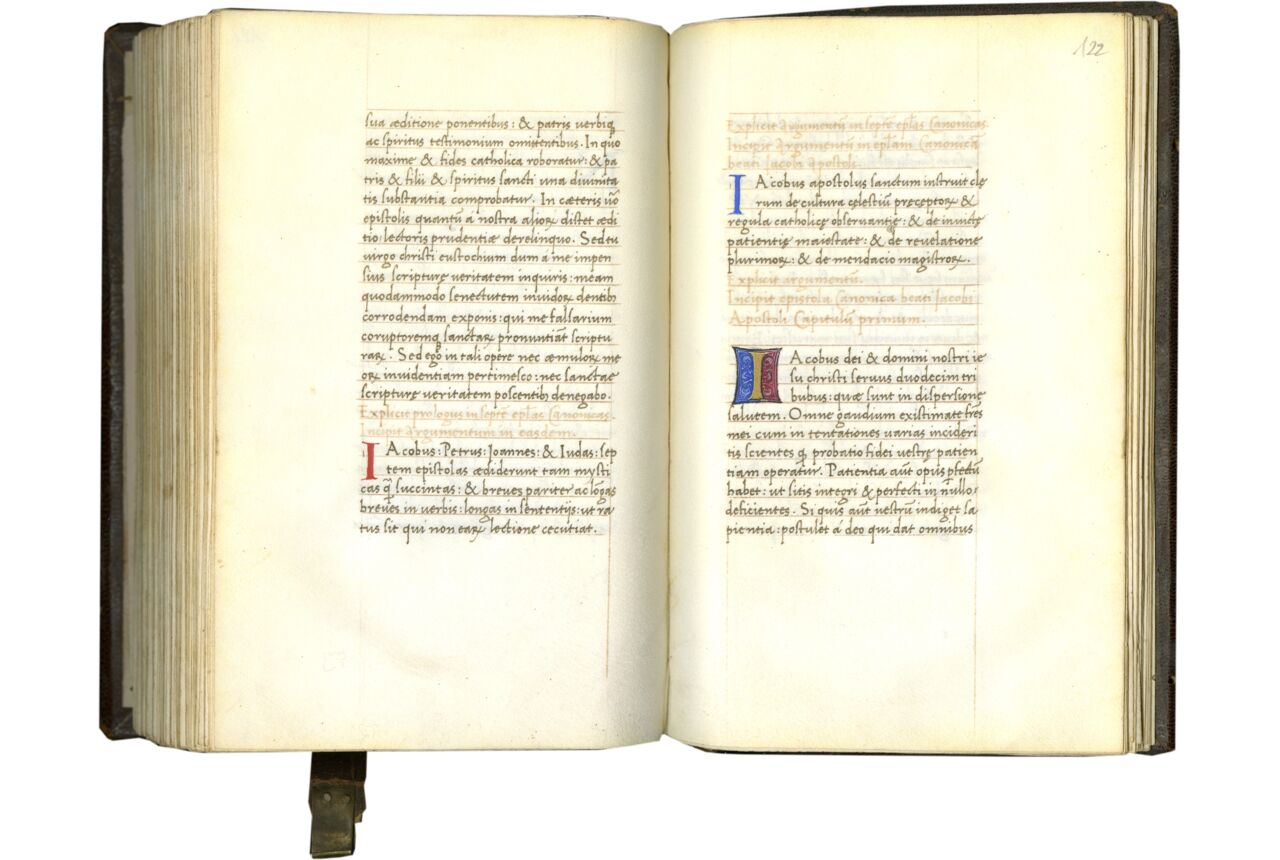 sua æditione ponentibus: & patris verbiq̨
ac spiritus testimonium omittentibus. In quo
maxime & fides catholica roboratur: & pa
tris & filii & spiritus sancti una divinita
tis substantia comprobatur. In cæteris uo᷒
epistolis quantū a nostra alioꝝ distet ædi
tio: lectoris prudentiæ derelinquo. Sed tu
virgo christi eustochium dum a me impen
sius scripturę veritatem inquiris: meam
quodammodo senectutem invidoꝝ dentibꝫ
corrodendam exponis: qui me falsarium
coruptoremqꝫ sanctaꝝ pronuntiāt scriptu
raꝝ. Sed ego in tali opere nec æmuloꝝ me
oꝝ invidentiam pertimesco: nec sanctae
scripturę veritatem poscentibꝫ denegabo.
Explicit prologus in septē epl̄as Canonicas.
Incipit argumentum in easdem.
IAcobus: Petrus: Joannes: & Iudas: sep
tem epistolas ædiderunt tam mysti
cas q̄ succintas: & breves pariter ac lōgas
breves in verbis: longas in sententijs: ut ra
tus sit qui non eaꝝ lectione cecutiat.
122
Explicit argumentū in septē epl̄as Canonicas.
Incipit argumentū in epl̄am Canonicā
beati Iacobi apostoli.
IAcobus apostolus sanctum instruit cle
rum de cultura celestiū preceptoꝝ &
regula catholicę observantię: & de invictę
patientię maiestate: & de revelatione
plurimoꝝ: & de mendacio magistroꝝ.
Explicit argumentū.
Incipit epistola Canonica beati Iacobi
Apostoli Capitulū primum.
IAcobus dei & domini nostri ie
su christi servus duodecim tri
bubus: quæ sunt in dispersione
salutem. Omne gaudium existimate fr̄es
mei cum in tentationes varias incideri
tis scientes q̨ probatio fidei vestrę patien
tiam operatur. Patientia aūt opus ꝑfectū
habet: ut sitis integri & perfecti in nullo
deficientes. Si quis aūt vestrū indiget sa
pientia: postulet a deo qui dat omnibus